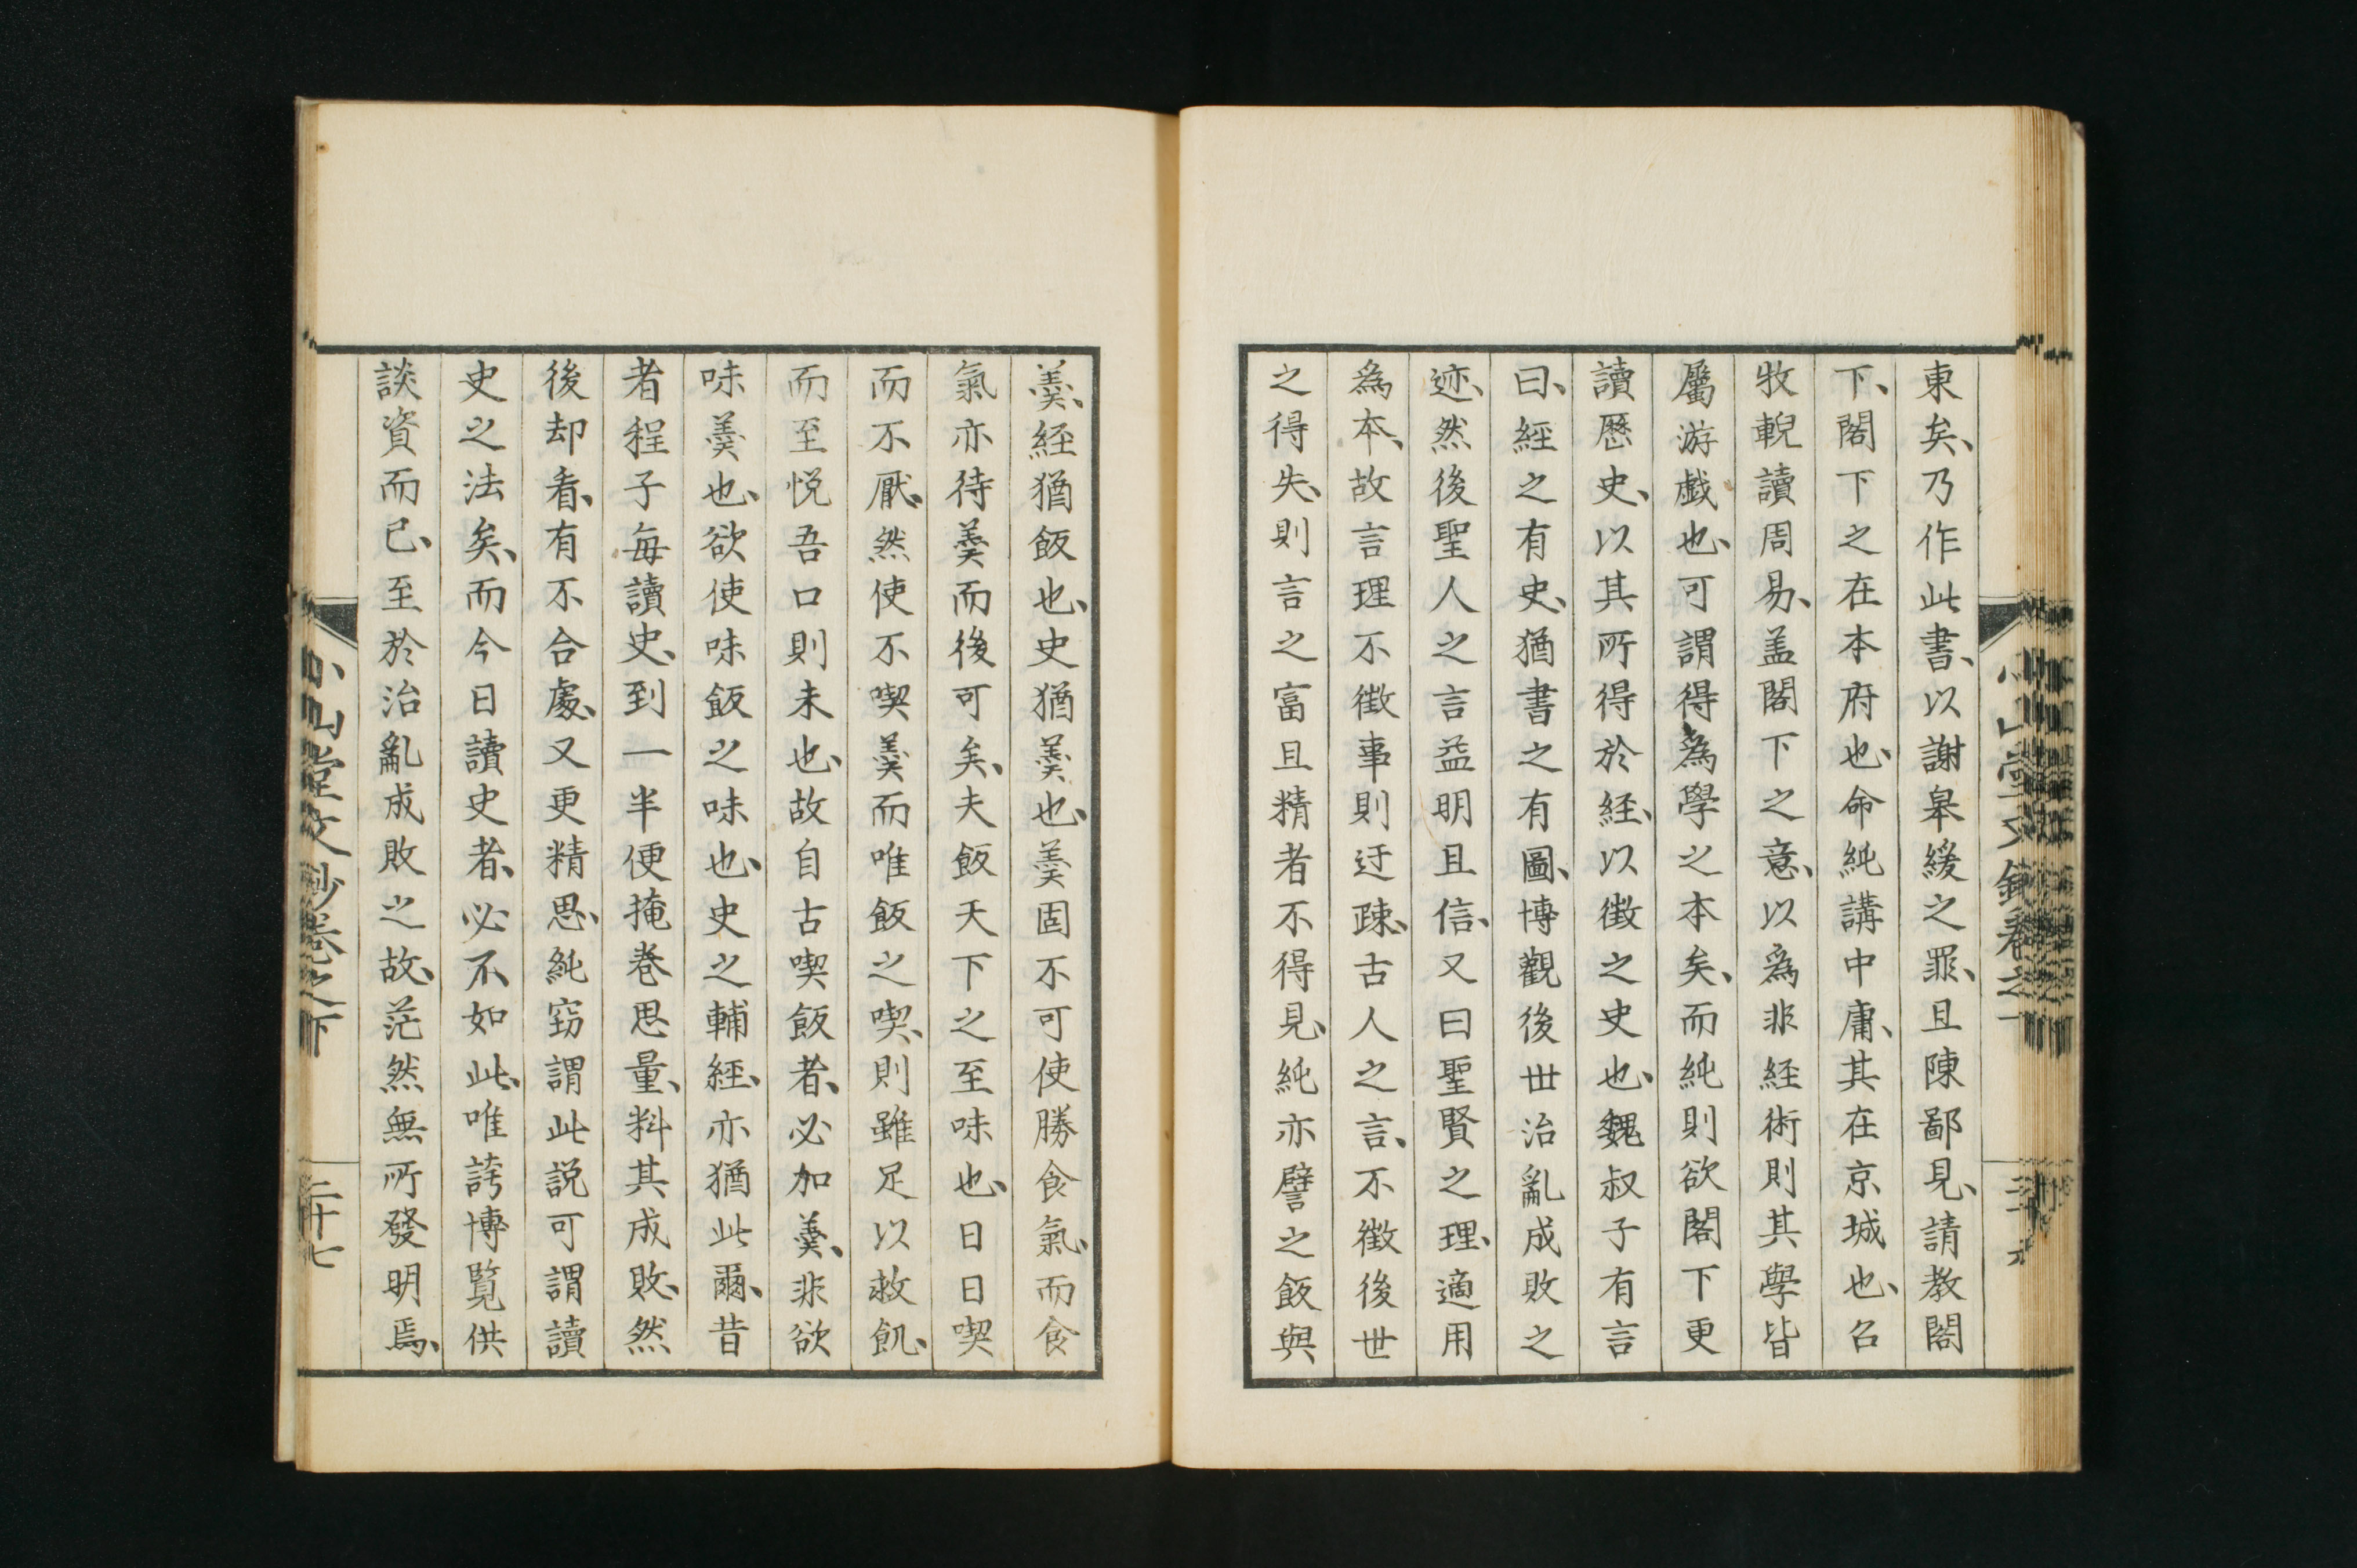 東矣、乃作此書、以謝皋緩之罪、且陳鄙見、請教閤
下、閤下之在本府也、命純講中庸、其在京城也、召
牧輗讀周易、盖閤下之意、以爲非経術則其學皆
屬游戯也、可謂得爲學之本矣、而純則欲閤下更
讀歴史、以其所得於経、以徴之史也、魏叔子有言
曰、經之有史、猶書之有圖、博觀後世治亂成敗之
迹、然後聖人之言益明且信、又曰聖賢之理、適用
爲本、故言理不徴事則迂疎、古人之言、不徴後世
之得失、則言之富且精者不得見、純亦譬之飯與
羮、経猶飯也、史猶羮也、羮固不可使勝食氣、而食
氣亦待羮而後可矣、夫飯天下之至味也、日日喫
而不厭、然使不喫羮而唯飯之喫、則雖足以救飢、
而至悦吾口則未也、故自古喫飯者、必加羮、非欲
味羮也、欲使味飯之味也、史之輔経、亦猶此爾、昔
者程子毎讀史、到一半便掩巻思量、料其成敗、然
後却看、有不合處、又更精思、純窃謂此説可謂讀
史之法矣、而今日讀史者、必不如此、唯誇博覧供
談資而已、至於治亂成敗之故、茫然無所發明焉、
小山堂文鈔巻之下
二十七